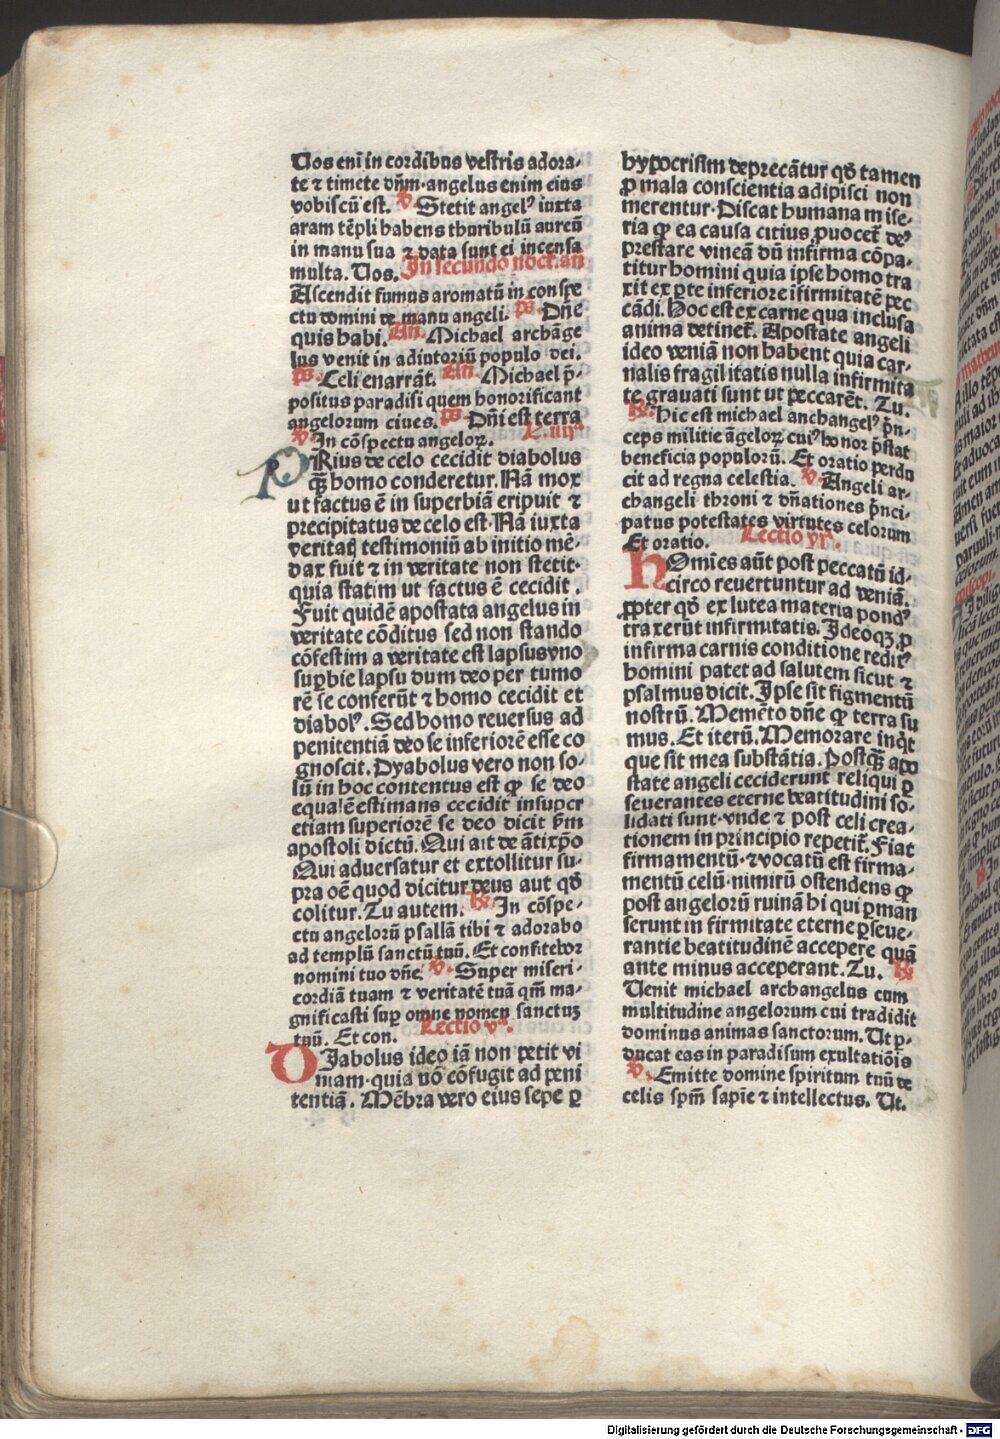 Uos eni in cordibus vestris adora-
te ⁊ timete dn̄m·angelus enim eius
vobiscū est. v̄. Stetit angelꝰ iuxta
aram tēpli habens thuribulū aureū
in manu sua ⁊ data sunt ei incensa
multa. Uos. In secundo noct̄. an̄
Ascendit fumus aromatū in conspe
ctu domini de manu angeli. ps̄. Dn̄e
quis habi. An̄. Michael archāge
lus venit in adiutoriū populo dei.
ps̄. Celi enarrāt. An̄. Michael p̄-
positus paradisi quem honorificant
angelorum ciues. ps̄. Dn̄i est terra
v̄. In cōspectu angeloꝝ. L. iiij
PRius de celo cecidit diabolus
qꝫ̄ homo conderetur. Nā mox
ut factus ē in superbiā eripuit ⁊
precipitatus de celo est. Nā iuxta
veritatꝭ testimoniū ab initio mē-
dax fuit ⁊ in veritate non stetit·
quia statim ut factus ē cecidit.
Fuit quidē apostata angelus in
veritate cōditus sed non stando
cōfestim a veritate est lapsus vno
suꝑbie lapsu dum deo per tumo
rē se conferūt ⁊ homo cecidit et
diabolꝰ. Sed homo reuersus ad
penitentiā deo se inferiorē esse co
gnoscit. Dyabolus vero non so-
lū in hoc contentus est ꝙ se deo
equalē estimans cecidit insuper
etiam superiorē se deo dicit ẜm
apostoli dictū. Qui ait de ātixp̄o
Qui aduersatur et extollitur su-
pra oē quod dicitur deus aut qd̄
colitur. Tu autem. R̄. In cōspe-
ctu angelorū psallā tibi ⁊ adorabo
ad templū sanctū tuū. Et confitebor
nomini tuo dn̄e. v̄. Super miseri-
cordiā tuam ⁊ veritatē tuā qm̄ ma-
gnificasti suꝑ omne nomen sanctuꝫ
tuū. Et con. Lectio v̄ᵃ.
DIabolus ideo iā non petit vi
niam·quia nō cōfugit ad peni
tentiā. Mēbra vero eius sepe ꝑ
hypocrisim deprecātur qd̄ tamen
ꝓ mala conscientia adipisci non
merentur·Discat humana mise-
ria ꝙ ea causa citius ꝓuocet̄ deꝰ
prestare vineā dū infirma cōpa-
titur homini quia ipse homo tra
xit ex ꝑte inferiore īfirmitatē pec
cādi. Hoc est ex carne qua inclusa
anima detinet̄. Apostate angeli
ideo veniā non habent quia car-
nalis fragilitatis nulla infirmita
te grauati sunt ut peccarēt. Tu.
R̄. Hic est michael archangelꝰ p̄n-
ceps militie āgeloꝝ cuiꝰ honor p̄stat
beneficia populorū. Et oratio perdu
cit ad regna celestia. v̄. Angeli ar-
changeli throni ⁊ dn̄ationes p̄nci-
patus potestates virtutes celorum
Et oratio. Lectio vjᵃ.
HOmīes aūt post peccatū id-
circo reuertuntur ad veniā.
ꝓpter qd̄ ex lutea materia pondꝰ
traxerūt infirmitatis. Ideoqꝫ ꝓ
infirma carnis conditione reditꝰ
homini patet ad salutem sicut ⁊
psalmus dicit. Ipse sit figmentū
nostrū. Memēto dn̄e ꝙ terra su
mus. Et iterū. Memorare inqͥt
que sit mea substātia. Postqꝫ̄ apo
state angeli ceciderunt reliqui ꝑ
seuerantes eterne beatitudini so-
lidati sunt·vnde ⁊ post celi crea-
tionem in principio repetit̄. Fiat
firmamentū·⁊ vocatū est firma-
mentū celū·nimirū ostendens ꝙ
post angelorū ruinā hi qui ꝑman
serunt in firmitate eterne ꝑseue-
rantie beatitudinē accepere quā
ante minus acceperant. Tu. R̄.
Uenit michael archangelus cum
multitudine angelorum cui tradidit
dominus animas sanctorum. Ut ꝑ-
ducat eas in paradisum exultatiōis
v̄. Emitte domine spiritum tuū de
celis spm̄ sapīe ⁊ intellectus. Ut.
Digitalisierung gefördert durch die Deutsche Forschungsgemeinschaft - DFG